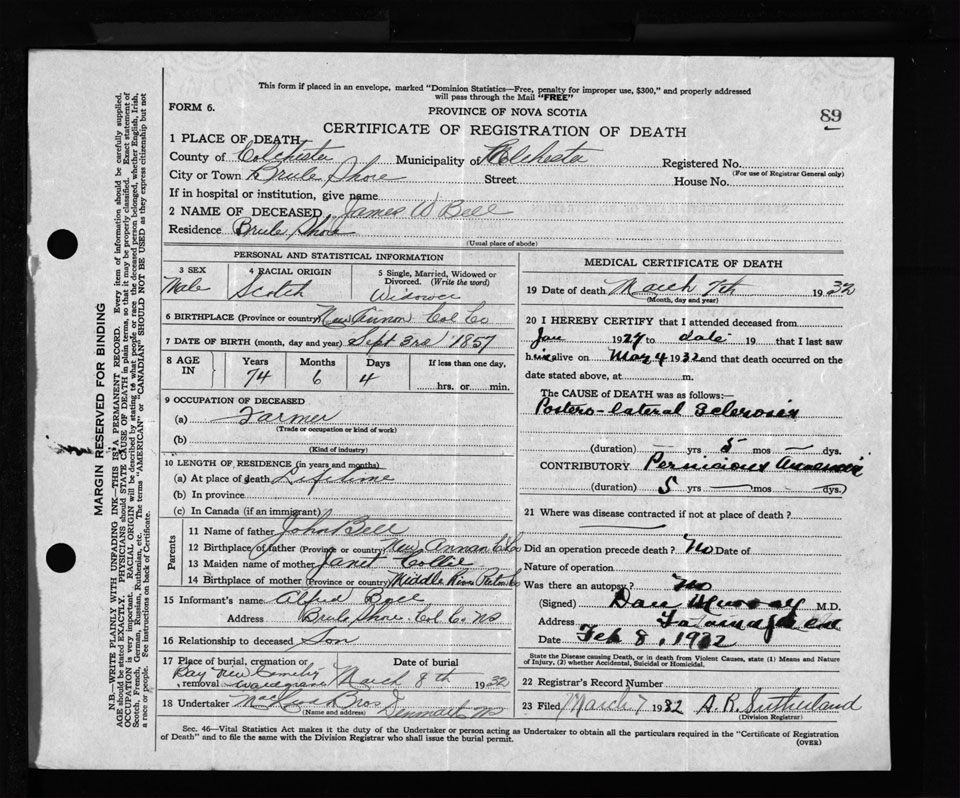 This form if placed in an envelope, marked "Dominion Statistics—Free, penalty for improper use, $300," and properly addressed
will pass through the Mail "FREE"
FORM 6.
PROVINCE OF NOVA SCOTIA
89
CERTIFICATE OF REGISTRATION OF DEATH
1 PLACE OF DEATH
County of Colchester Municipality of Colchester Registered No.
(For use of Registrar General only)
City or Town Brule Shore Street House No.
If in hospital or institution, give name
2 NAME OF DECEASED James W Bell
Residence Brule Shore
(Usual place of abode)
PERSONAL AND STATISTICAL INFORMATION
3 SEX 4 RACIAL ORIGIN 5 Single, Married, Widowed or
Divorced. (Write the word)
Male Scotch Widower
6 BIRTHPLACE (Province or country) New Annan Col Co
7 DATE OF BIRTH (month, day and year) Sept 3rd 1857
8 AGE IN Years Months Days If less than one day,
74 6 4 hrs. or min.
9 OCCUPATION OF DECEASED
(a) Farmer
(Trade or occupation or kind of work)
(b)
(Kind of industry)
10 LENGTH OF RESIDENCE (in years and months)
(a) At place of death Lifetime
(b) In province
(c) In Canada (if an immigrant)
Parents
11 Name of father John Bell
12 Birthplace of father (Province or country) New Annan C Co
13 Maiden name of mother Janet Collie
14 Birthplace of mother (Province or country) Middle River Pictou Co
15 Informant's name Alfred Bell
Address Brule Shore Col C. NS
16 Relationship to deceased Son
17 Place of burial, cremation or removal Date of burial
Bay View Cemetery March 8th 1932
18 Undertaker Bros Denmark NS
(Name and address)
MEDICAL CERTIFICATE OF DEATH
19 Date of death March 7th 1932
(Month, day and year)
20 I HEREBY CERTIFY that I attended deceased from
Jan 1927 to date 19 that I last saw
h im alive on Mar 4 1932 and that death occurred on the
date stated above, at m.
The CAUSE OF DEATH was as follows:—
Postero-lateral Sclerosis
(duration) — yrs 5 mos — dys.
CONTRIBUTORY Pernicious Anaemia
(duration) 5 yrs — mos — dys.
21 Where was disease contracted if not at place of death?
Did an operation precede death? No Date of
Nature of operation
Was there an autopsy? No
(Signed) Dan Murray M.D.
Address Tatamagouche
Date Feb 8, 1932
State the Disease causing Death, or in death from Violent Causes, state (1) Means and Nature
of Injury, (2) whether Accidental, Suicidal or Homicidal.
22 Registrar's Record Number
23 Filed March 7 1932 A. R. Sutherland
(Division Registrar)
Sec. 46—Vital Statistics Act makes it the duty of the Undertaker or person acting as Undertaker to obtain all the particulars required in the "Certificate of Registration
of Death" and to file the same with the Division Registrar who shall issue the burial permit.
(OVER)
MARGIN RESERVED FOR BINDING
N.B.—WRITE PLAINLY WITH UNFADING INK—THIS IS A PERMANENT RECORD. Every item of information should be carefully supplied.
AGE should be stated EXACTLY. PHYSICIANS should STATE CAUSE OF DEATH in plain terms, so that it may be properly classified. Exact statement of
OCCUPATION is very important. RACIAL ORIGIN will be described by stating to what people or race the deceased person belonged, whether English, Irish,
Scotch, French, German, Russian, Ruthenian, etc. The terms "AMERICAN" or "CANADIAN" SHOULD NOT BE USED as they express citizenship but not
a race or people. See instructions on back of Certificate.